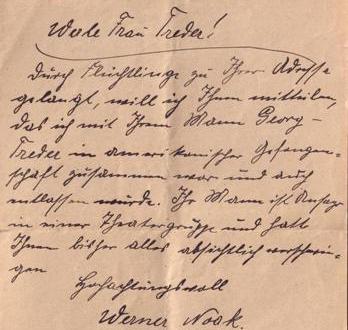 Werte Frau Treder!
Durch Flüchtlinge zu Ihrer Adresse
gelangt, will ich Ihnen mitteilen,
das ich mit Ihrem Mann Georg-
Treder in amerikanischer Gefangen-
schaft zusammen war und auch
entlassen wurde. Ihr Mann ist Ansager
in einer Theatergruppe und hatt
Ihnen bisher alles absichtlich verschwie-
gen
Hochachtungsvoll
Werner Noak.